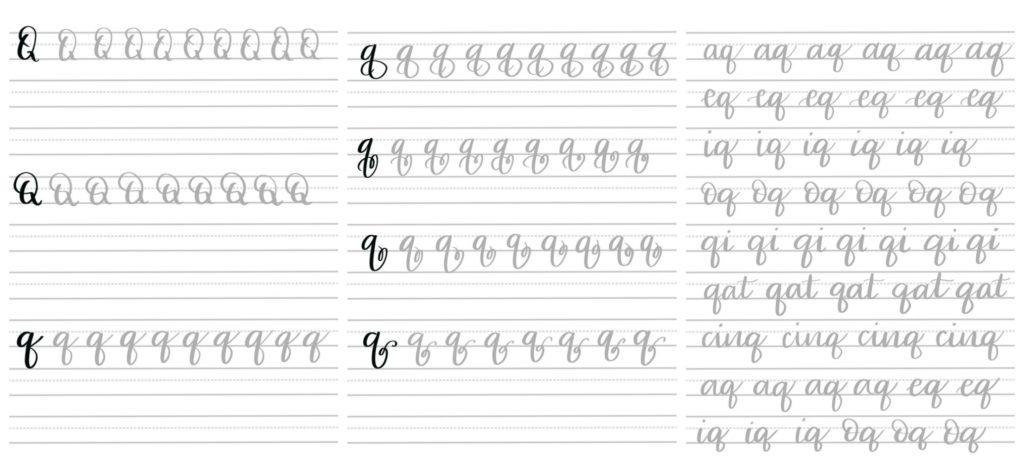 Q Q Q Q Q Q Q Q Q Q
Q Q Q Q Q Q Q Q Q
q q q q q q q q q q
q q q q q q q q q q
q q q q q q q q q
q q q q q q q q q
q q q q q q q q
aq aq aq aq aq aq
eq eq eq eq eq eq
iq iq iq iq iq iq
oq oq oq oq oq oq
qi qi qi qi qi qi qi
qat qat qat qat qat
cinq cinq cinq cinq
aq aq aq aq eq eq
iq iq iq oq oq oq